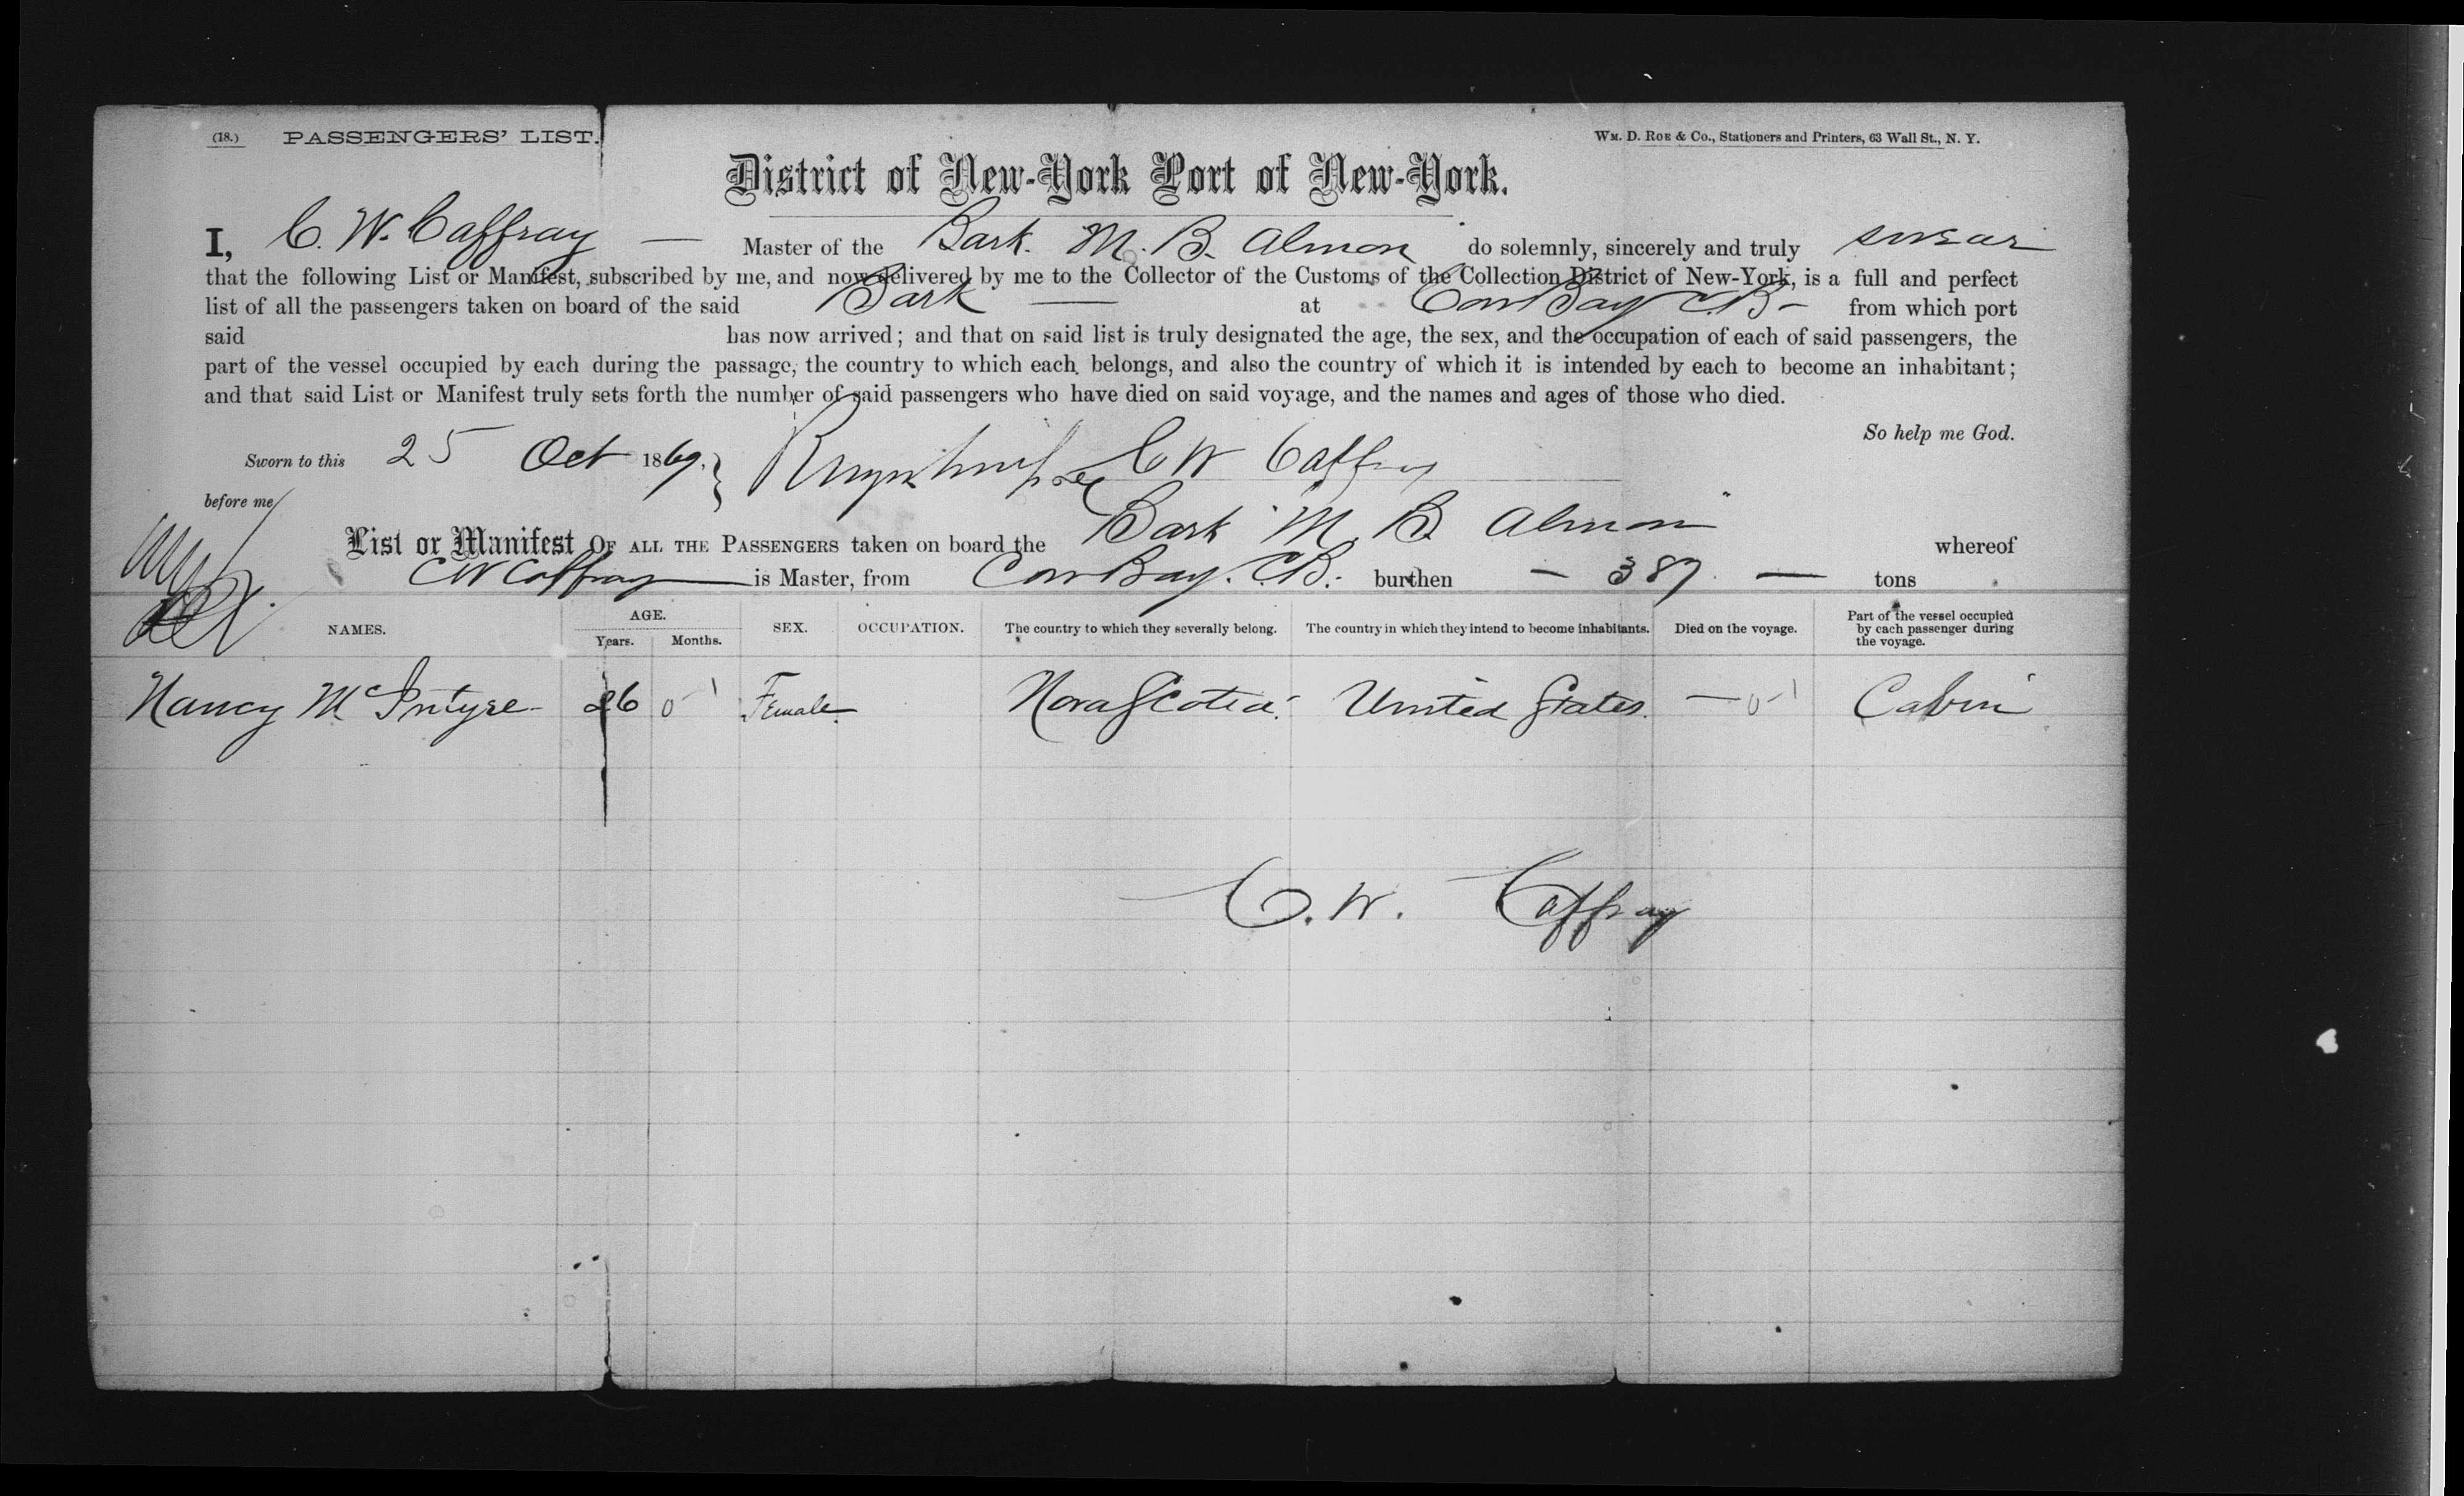 (18.) PASSENGERS' LIST. WM. D. ROE & CO., Stationers and Printers, 63 Wall St., N. Y.
District of New-York Port of New-York.
I, C. W. Caffray — Master of the Bark. M. B. Almon do solemnly, sincerely and truly swear
that the following List or Manifest, subscribed by me, and now delivered by me to the Collector of the Customs of the Collection District of New-York, is a full and perfect
list of all the passengers taken on board of the said Bark — at Cow Bay C.B. — from which port
said has now arrived; and that on said list is truly designated the age, the sex, and the occupation of each of said passengers, the
part of the vessel occupied by each during the passage, the country to which each belongs, and also the country of which it is intended by each to become an inhabitant;
and that said List or Manifest truly sets forth the number of said passengers who have died on said voyage, and the names and ages of those who died.
So help me God.
Sworn to this 25 Oct 1869. } C W Caffray
before me
List or Manifest OF ALL THE PASSENGERS taken on board the Bark "M. B. Almon" whereof
C W Caffray is Master, from Cow Bay. C.B. burthen — 387 — tons
NAMES. AGE. Years. Months. SEX. OCCUPATION. The country to which they severally belong. The country in which they intend to become inhabitants. Died on the voyage. Part of the vessel occupied by each passenger during the voyage.
Nancy McIntyre 26 0 Female Nova Scotia United States. — 0 Cabin
C. W. Caffray